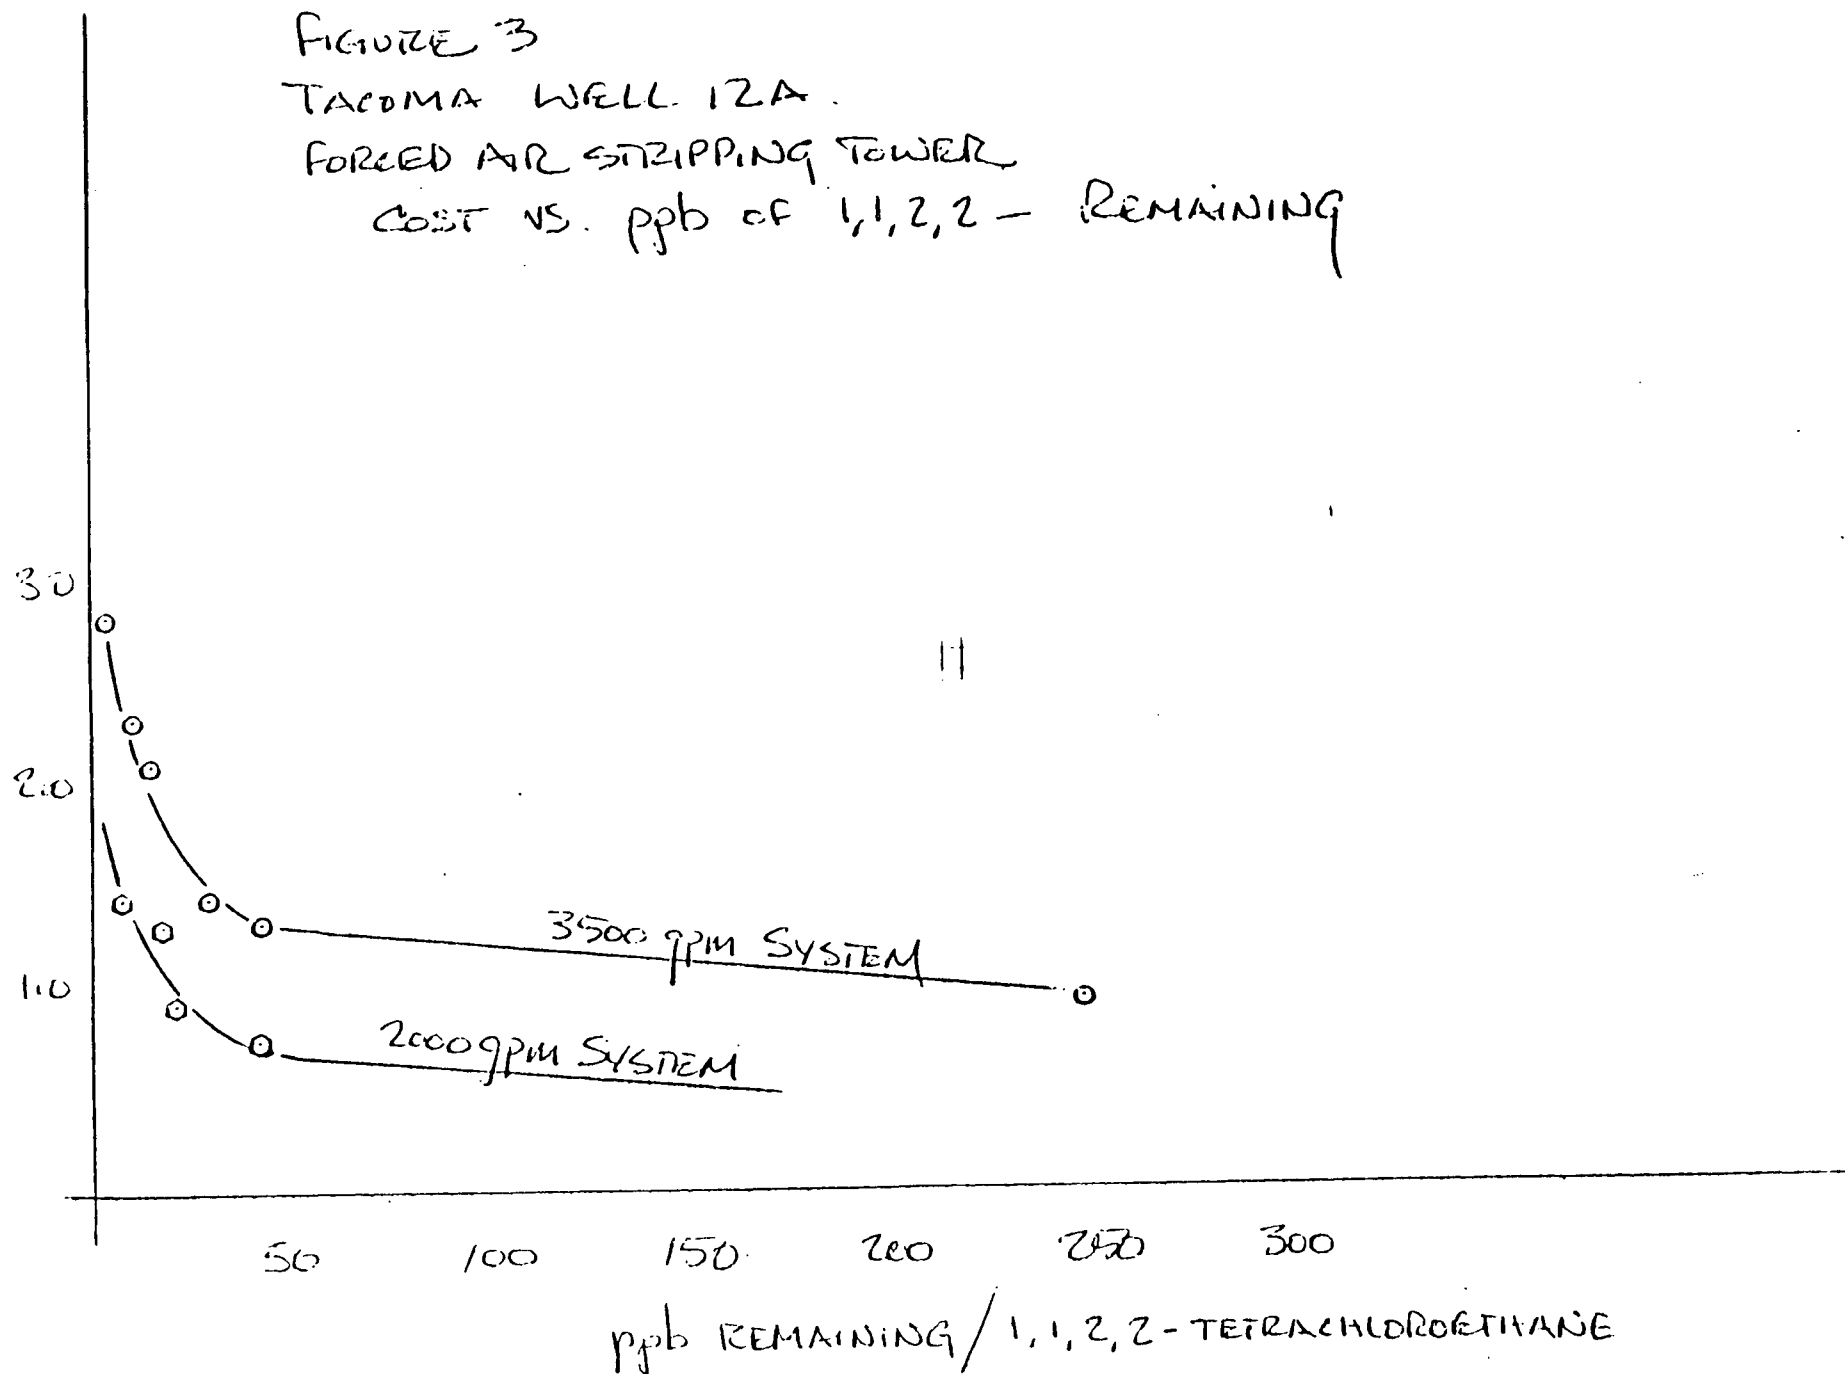 FIGURE 3
TACOMA WELL 12A.
FORCED AIR STRIPPING TOWER
COST VS. ppb of 1,1,2,2 — REMAINING
3.0
2.0
1.0
3500 gpm SYSTEM
2000 gpm SYSTEM
50 100 150 200 250 300
ppb REMAINING / 1,1,2,2-TETRACHLOROETHANE